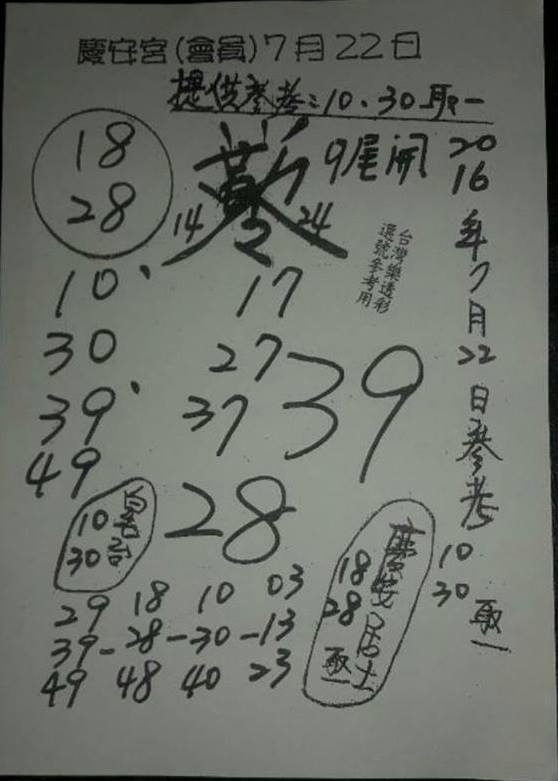 慶安宮(會員)7月22日
提供參考:10、30取一
18
28
14 24
9尾開
2016年7月22日參考
10
30
取一
台灣樂透彩
選號參考用
10、
30
39、
49
17
27
37
39
28
10
30
慶安居士
18
28
取一
29 18 10 03
39-28-30-13
49 48 40 23